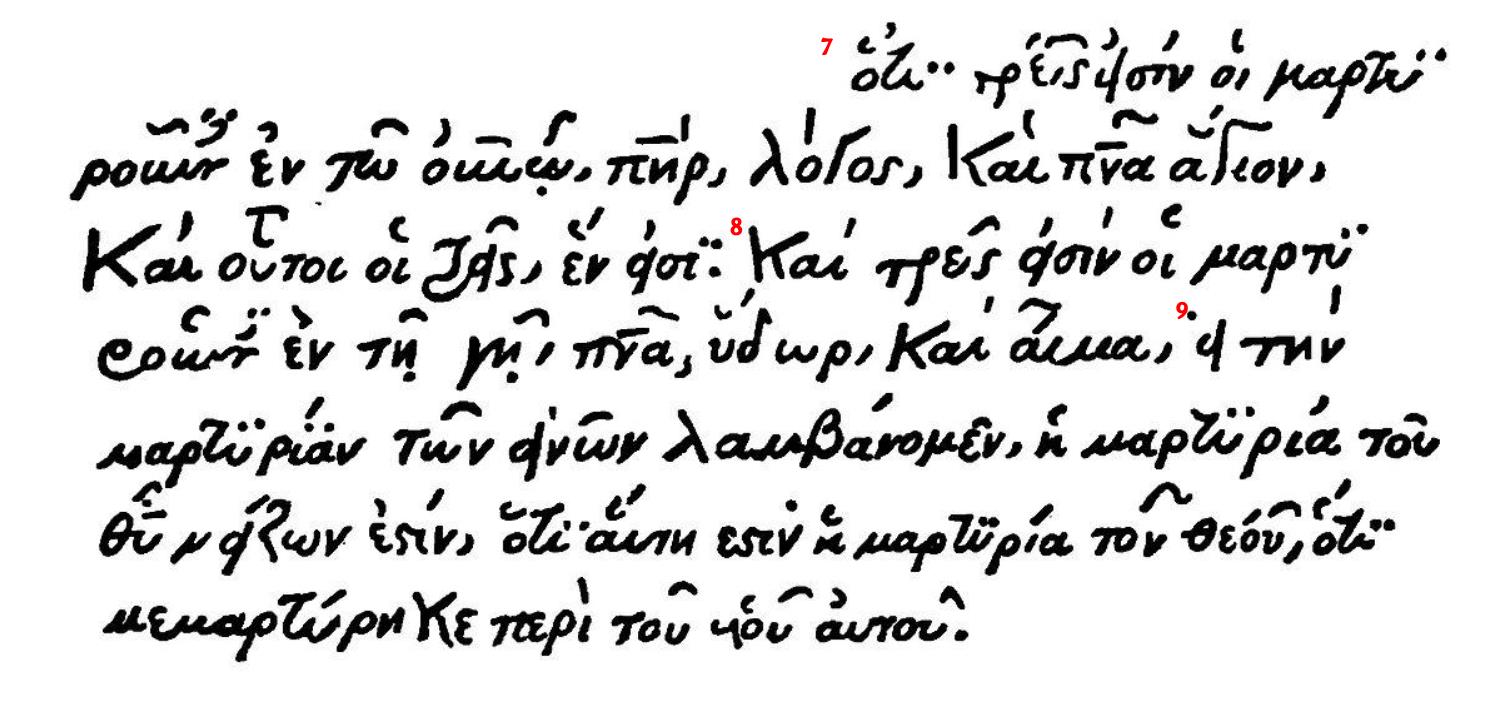 7 ὅτι τρεῖς εἰσὶν οἱ μαρτυ
ροῦντες ἐν τῶ οὐρανῷ, πηρ, λόγος, καὶ πνα ἅγιον,
Καὶ οὗτοι οἱ τρεῖς, ἕν εἰσι: 8 Καὶ τρεῖς εἰσὶν οἱ μαρτυ
ροῦντες ἐν τῆ γῆ, πνα, ὕδωρ, Καὶ αἷμα, 9 εἰ τὴν
μαρτυρίαν τῶν ἀνων λαμβάνομεν, ἡ μαρτυρία τοῦ
θυ μείζων ἐστίν, ὅτι αὕτη ἐστὶν ἡ μαρτυρία τοῦ θεοῦ, ὅτι
μεμαρτύρηκε περὶ τοῦ υἱοῦ αὐτοῦ.